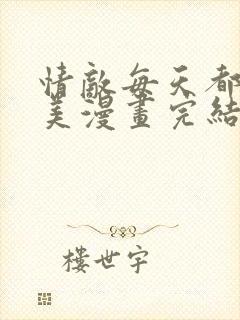 情敵每天都
美漫畫完結
樓世宇